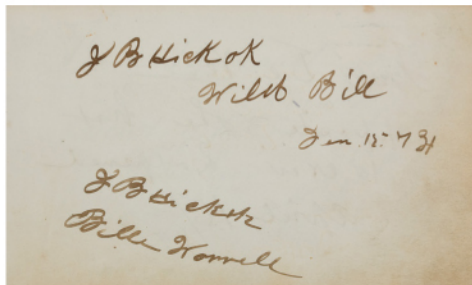 J B Hickok
Wild Bill
J B Hickok
Bille Worrell